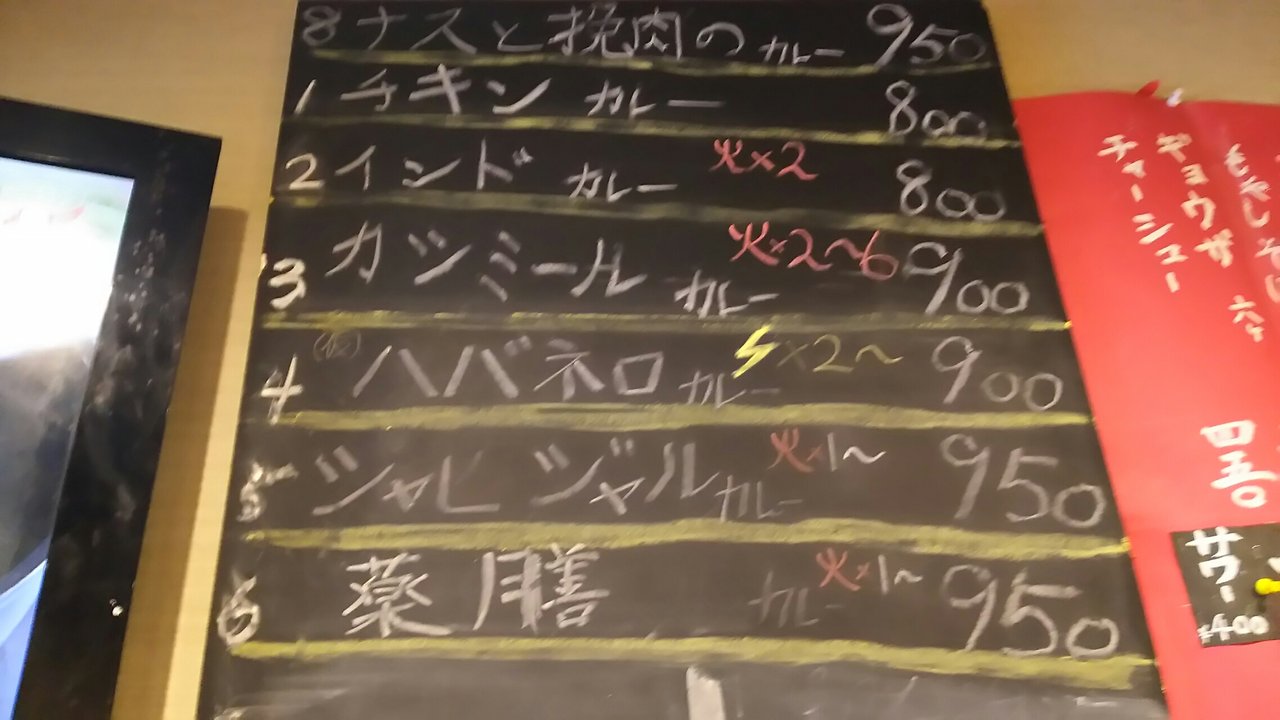 8 ナスと挽肉の カレー 950
1 チキン カレー 800
2 インド カレー 火×2 800
3 カシミール カレー 火×2〜6 900
4 (仮) ハバネロ カレー ×2〜 900
5 シャヒ ジャル カレー 火×1〜 950
6 薬膳 カレー 火×1〜 950
もやし
ギョウザ
チャーシュー
四五〇
サワー
¥400